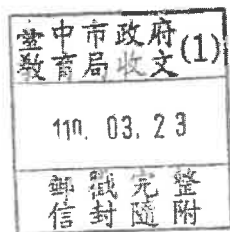 臺中市政府
教育局收文(1)
110. 03. 23
郵戳完整
信封隨附